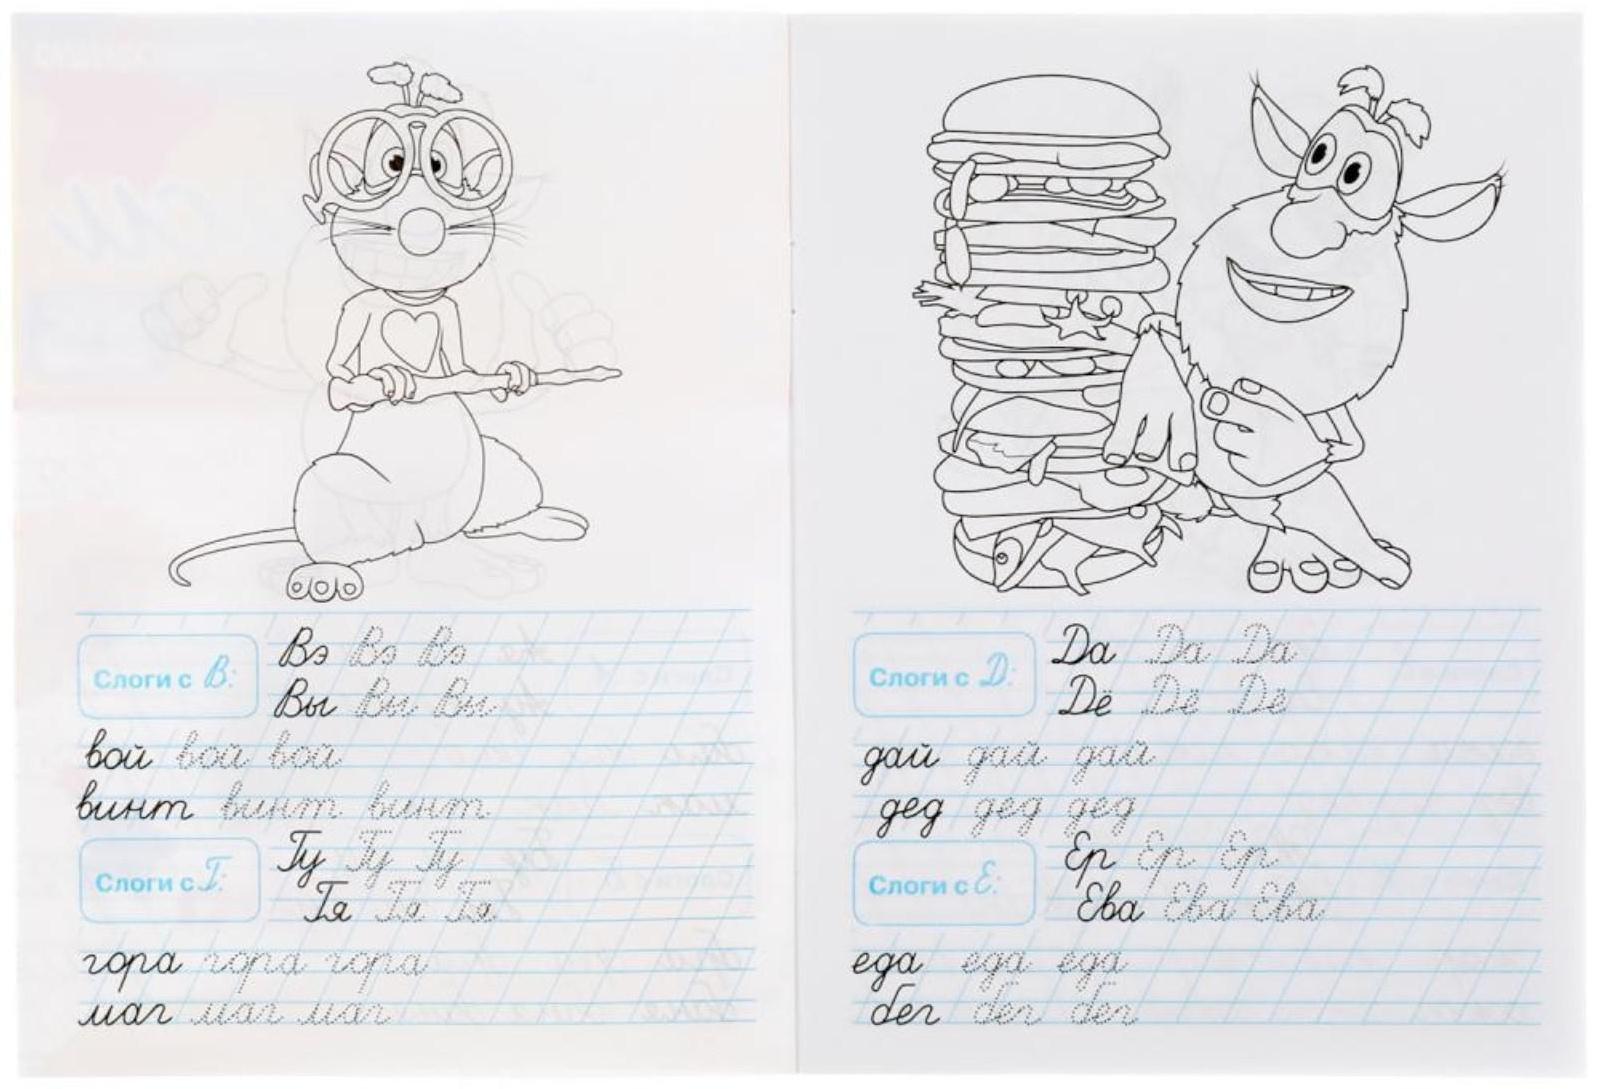 Слоги с В:
Вэ Вэ Вэ
Вы Вы Вы
вой вой вой
винт винт винт
Слоги с Г:
Гу Гу Гу
Гя Гя Гя
гора гора гора
маг маг маг
Слоги с Д:
Да Да Да
Дё Дё Дё
дай дай дай
дед дед дед
Слоги с Е:
Ер Ер Ер
Ева Ева Ева
еда еда еда
бег бег бег